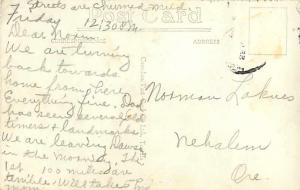 Streets are churned mud.
Post Card
Friday 12:30 P.M.
Dear Norm:
ADDRESS
We are turning
back towards
home from here.
Everything fine. Dad
has seen several old
timers & landmarks
We are leaving Dawson
in the morning. The
1st 100 miles are
terrible. Will take
Mom
Norman
Nehalem
Ore.